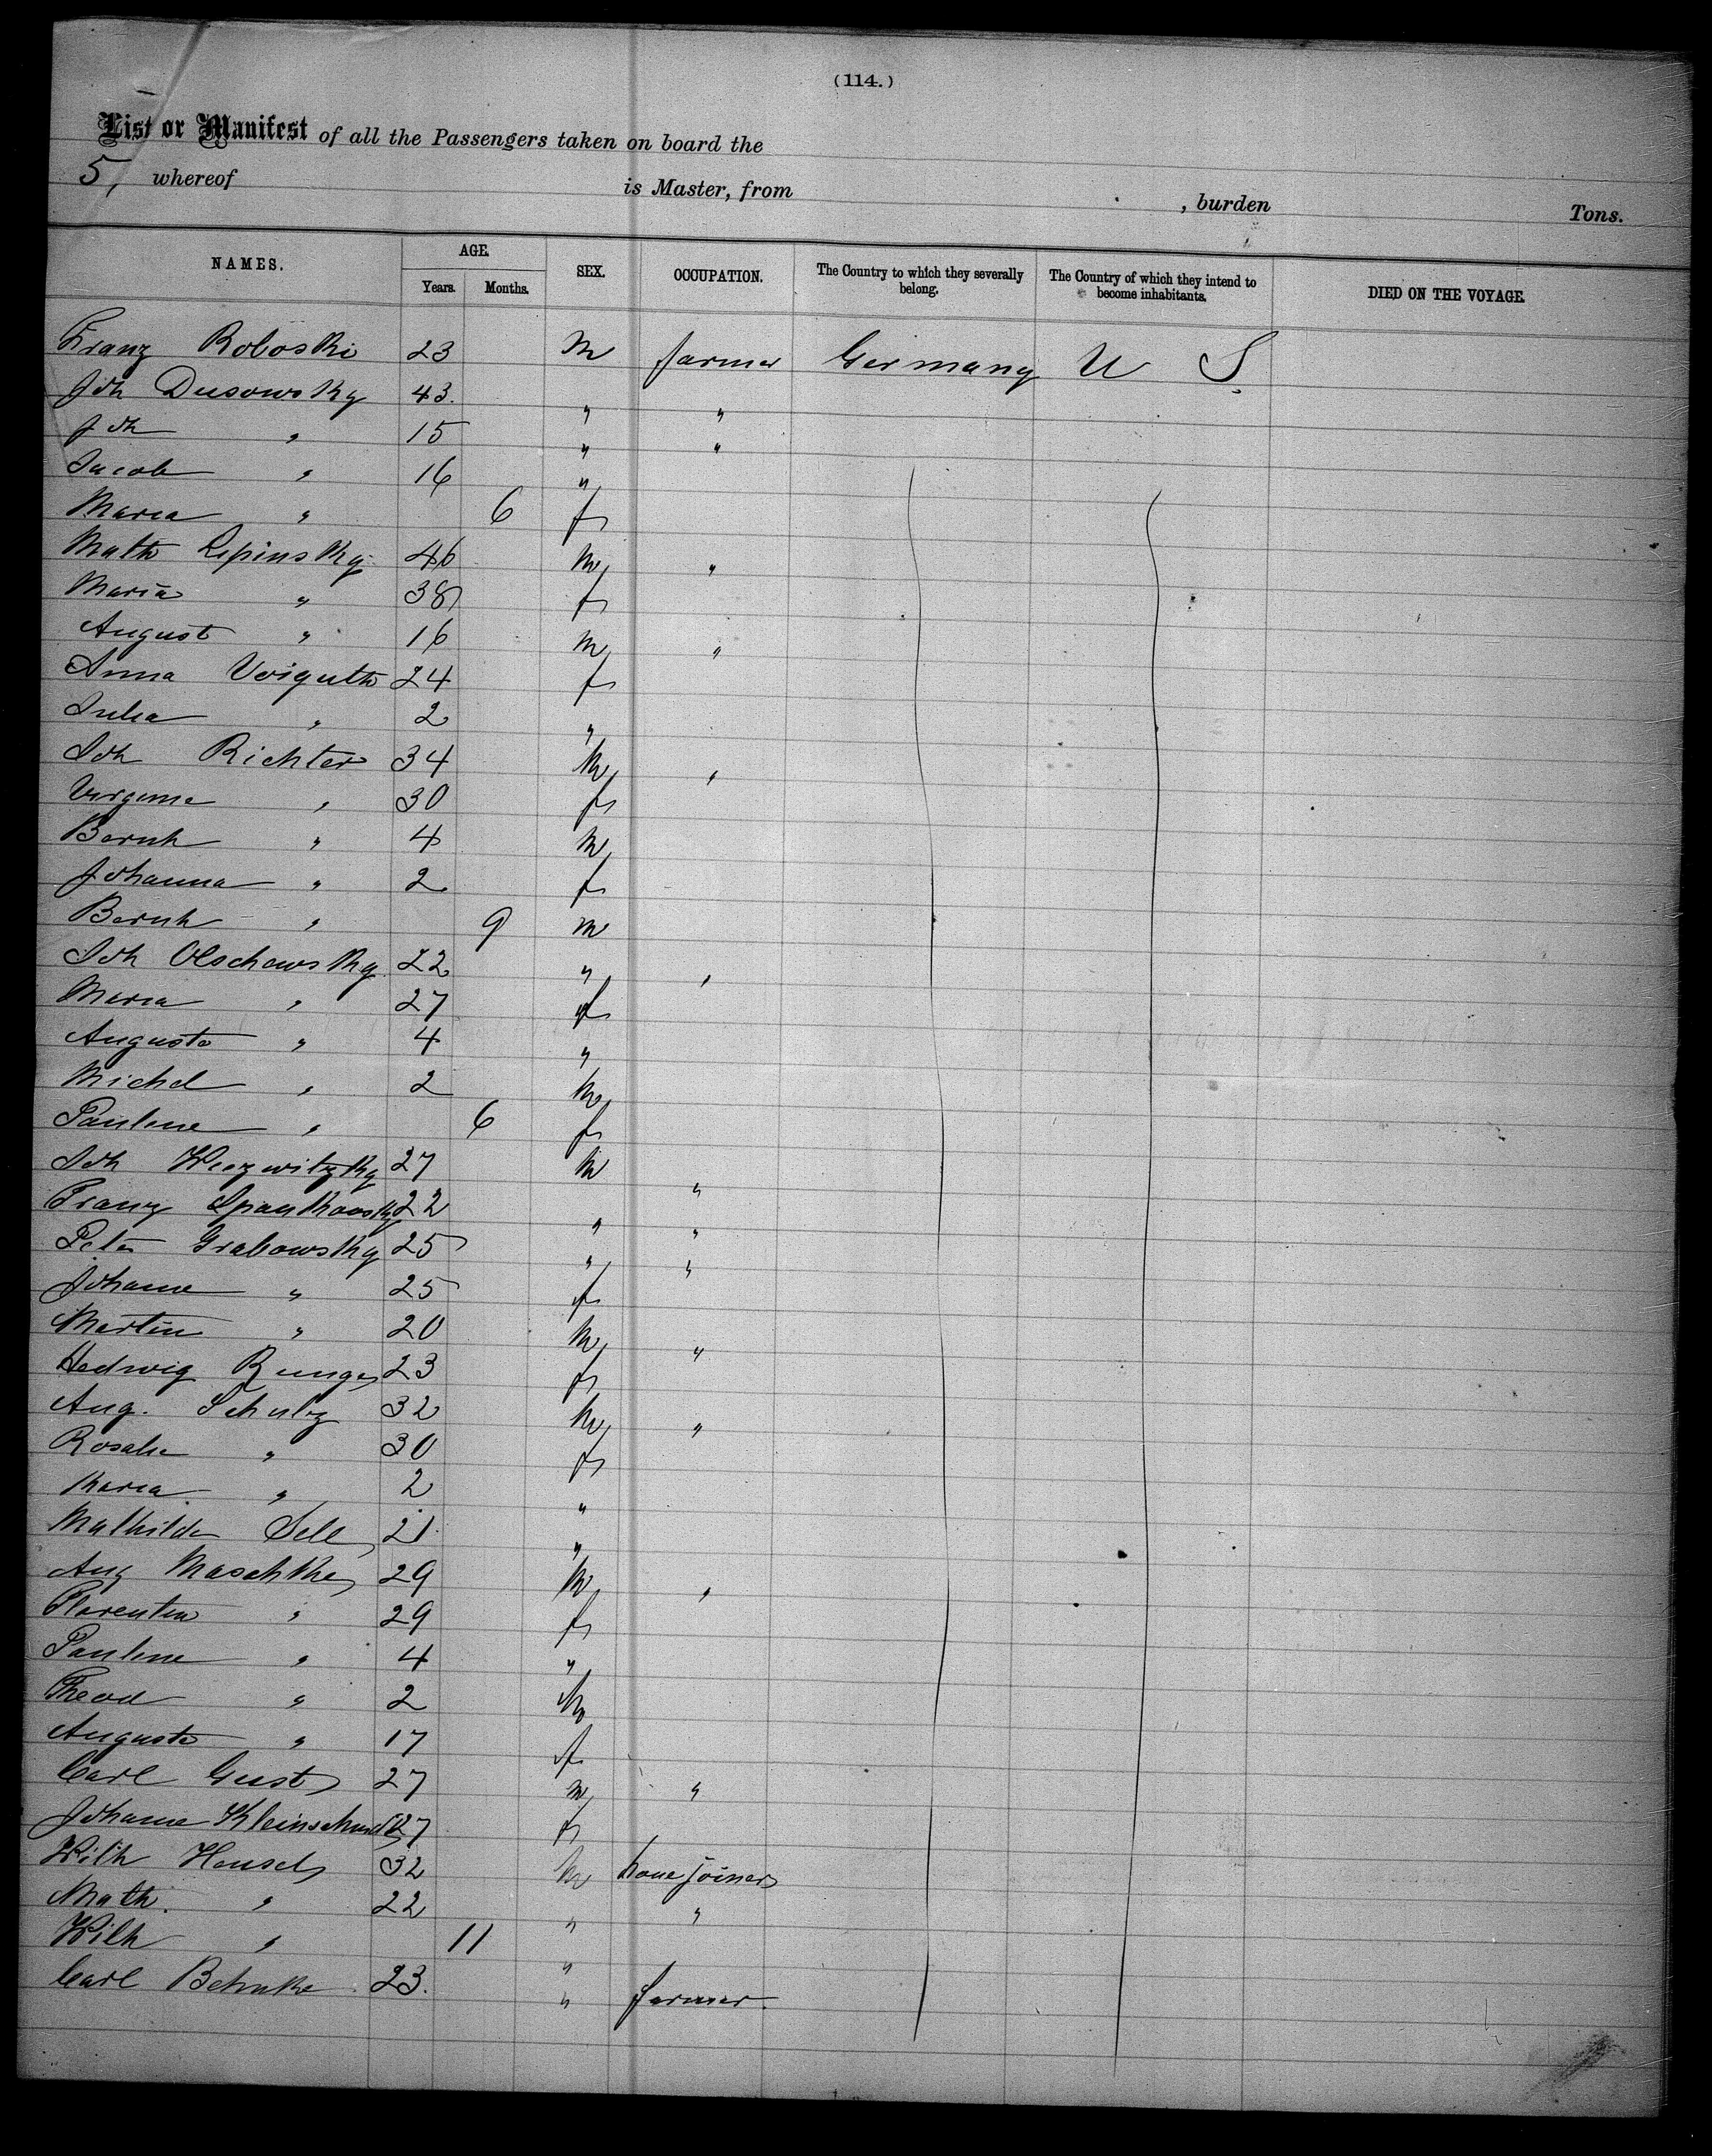 (114.)
List or Manifest of all the Passengers taken on board the
5, whereof is Master, from , burden Tons.
NAMES. AGE. Years. Months. SEX. OCCUPATION. The Country to which they severally belong. The Country of which they intend to become inhabitants. DIED ON THE VOYAGE.
Franz Roboski 23 m farmer Germany U S
Joh Dusowsky 43. " "
Joh " 15 " "
Jacob " 16 "
Maria " 6 f
Math Lipinsky 46 m "
Maria " 38 f
August " 16 m "
Anna Voiguth 24 f
Julia " 2 "
Joh Richter 34 m "
Virginie " 30 f
Bernh " 4 m
Johanna " 2 f
Bernh " 9 m
Joh Olschewsky 22 " "
Maria " 27 f
Auguste " 4 "
Michel " 2 m
Pauline " 6 f
Joh 27 m "
Franz Spankowsky 22 " "
Peter Grabowsky 25 " "
Johanne " 25 f
Martin " 20 m "
Hedwig Runge 23 f
Aug. Schulz 32 m "
Rosalie " 30 f
Maria " 2 "
Mathilde Sell 21 "
Aug Maschke 29 m "
Florentine " 29 f
Pauline " 4 "
Theod " 2 m
Auguste " 17 f
Carl Gust 27 m "
Johanne Kleinschmidt 27 f
Wilh Hensel 32 m joiner
Math. " 22 " "
Wilh " 11 "
Carl Behnke 23. " farmer.